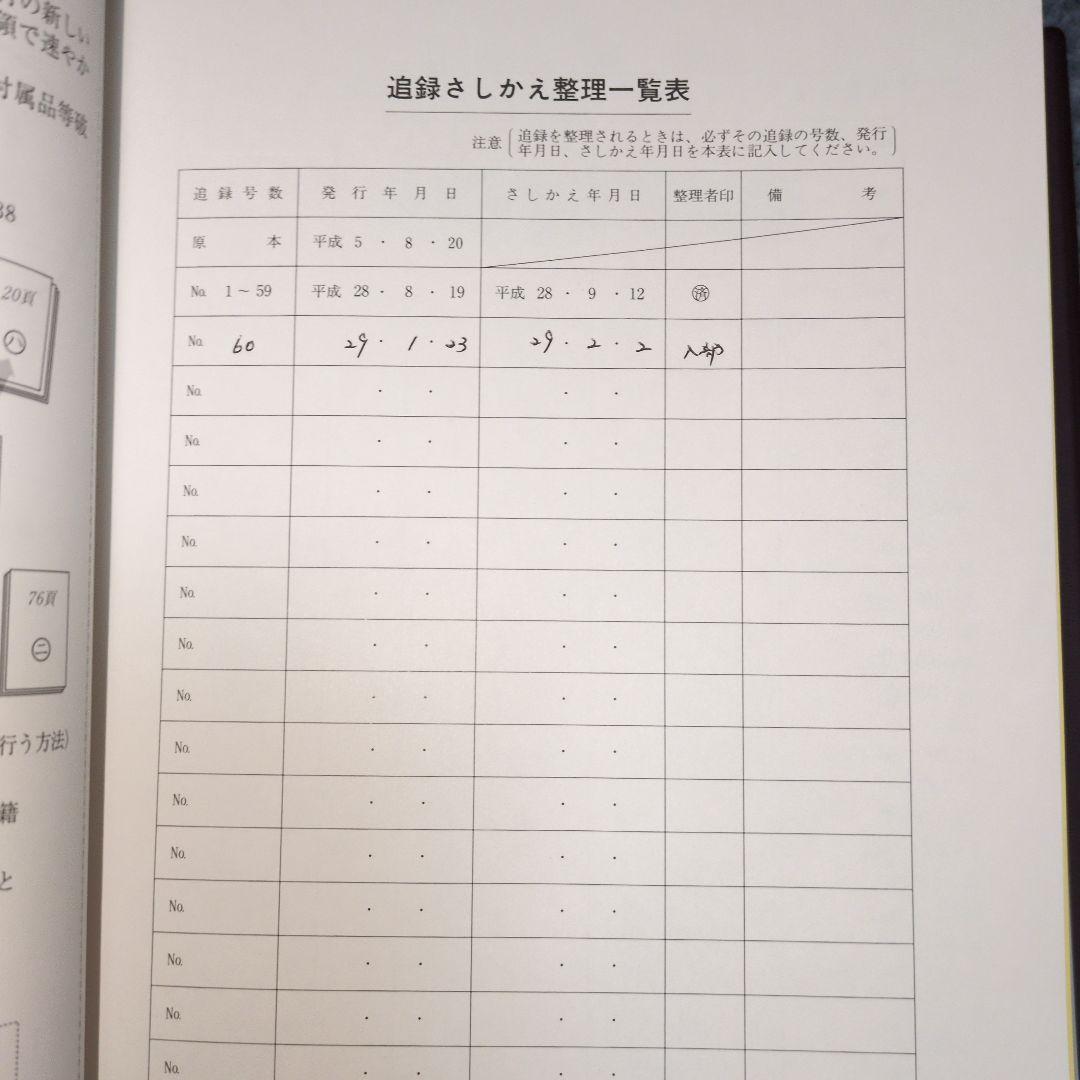 の新しい
領で速やか
付属品等破
38
20頁
ハ
76頁
ニ
行う方法)
籍
と
追録さしかえ整理一覧表
注意 追録を整理されるときは、必ずその追録の号数、発行
年月日、さしかえ年月日を本表に記入してください。
追録号数 発行年月日 さしかえ年月日 整理者印 備考
原本 平成 5 ・ 8 ・ 20
No. 1～59 平成 28 ・ 8 ・ 19 平成 28 ・ 9 ・ 12 済
No. 60 29 ・ 1 ・ 23 29 ・ 2 ・ 2
No. ・ ・ ・ ・
No. ・ ・ ・ ・
No. ・ ・ ・ ・
No. ・ ・ ・ ・
No. ・ ・ ・ ・
No. ・ ・ ・ ・
No. ・ ・ ・ ・
No. ・ ・ ・ ・
No. ・ ・ ・ ・
No. ・ ・ ・ ・
No. ・ ・ ・ ・
No. ・ ・ ・ ・
No. ・ ・ ・ ・
No. ・ ・ ・ ・